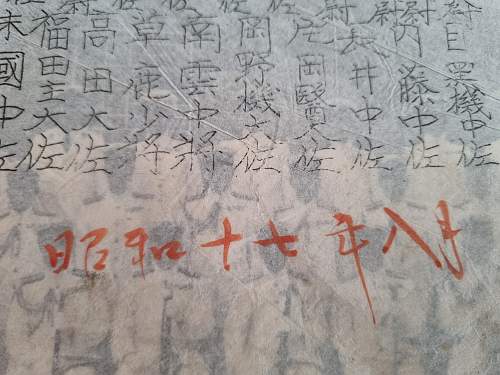 目黒機中佐
内藤中佐
井中佐
岡医大佐
岡野機大佐
南雲中將
草鹿少將
高田大佐
福田主大佐
國中佐
昭和十七年八月